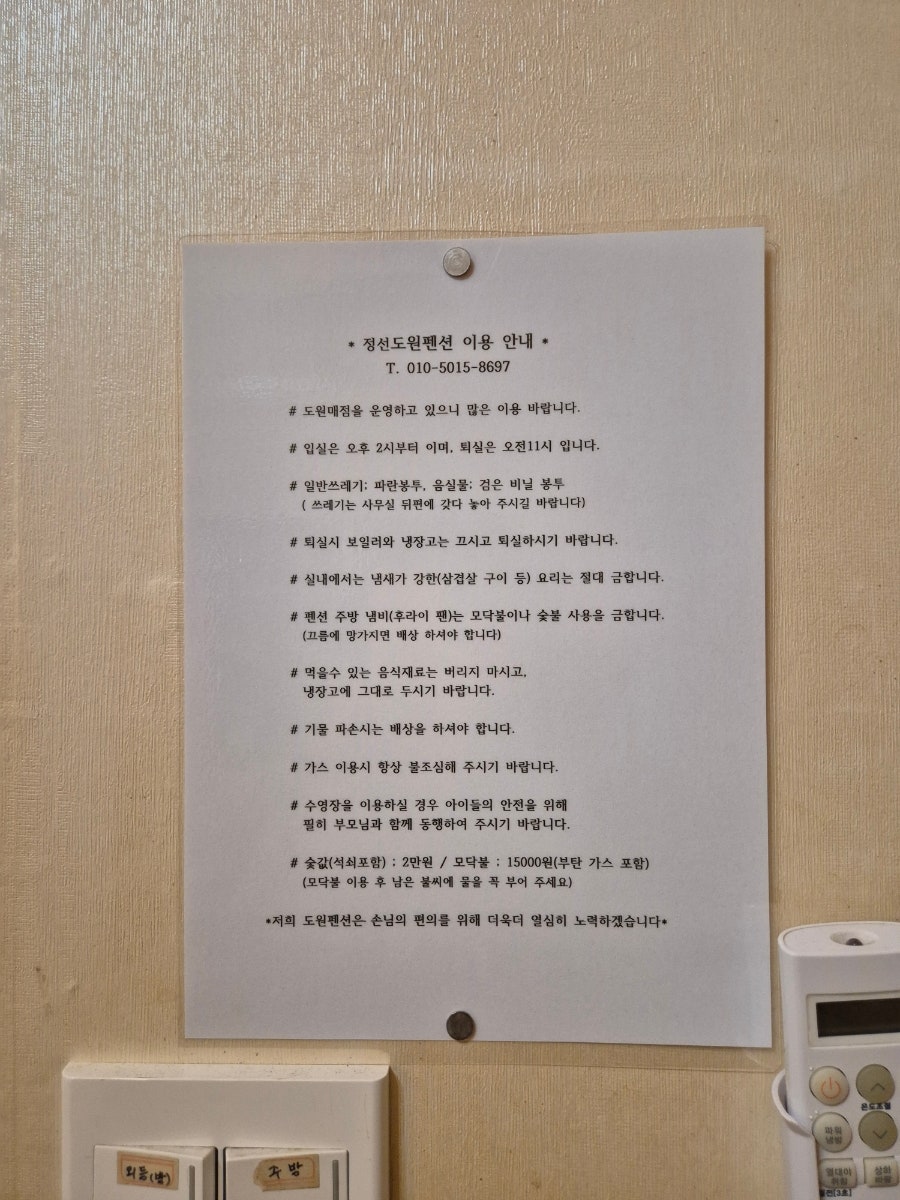 * 정선도원펜션 이용 안내 *
T. 010-5015-8697
# 도원매점을 운영하고 있으니 많은 이용 바랍니다.
# 입실은 오후 2시부터 이며, 퇴실은 오전11시 입니다.
# 일반쓰레기; 파란봉투, 음실물; 검은 비닐 봉투
( 쓰레기는 사무실 뒤편에 갖다 놓아 주시길 바랍니다)
# 퇴실시 보일러와 냉장고는 끄시고 퇴실하시기 바랍니다.
# 실내에서는 냄새가 강한(삼겹살 구이 등) 요리는 절대 금합니다.
# 펜션 주방 냄비(후라이 팬)는 모닥불이나 숯불 사용을 금합니다.
(끄름에 망가지면 배상 하셔야 합니다)
# 먹을수 있는 음식재료는 버리지 마시고,
냉장고에 그대로 두시기 바랍니다.
# 기물 파손시는 배상을 하셔야 합니다.
# 가스 이용시 항상 불조심해 주시기 바랍니다.
# 수영장을 이용하실 경우 아이들의 안전을 위해
필히 부모님과 함께 동행하여 주시기 바랍니다.
# 숯값(석쇠포함) ; 2만원 / 모닥불 ; 15000원(부탄 가스 포함)
(모닥불 이용 후 남은 불씨에 물을 꼭 부어 주세요)
*저희 도원펜션은 손님의 편의를 위해 더욱더 열심히 노력하겠습니다*
외등(밤)
주방
온도조절
파워
냉방
열대야
취침
상하
바람